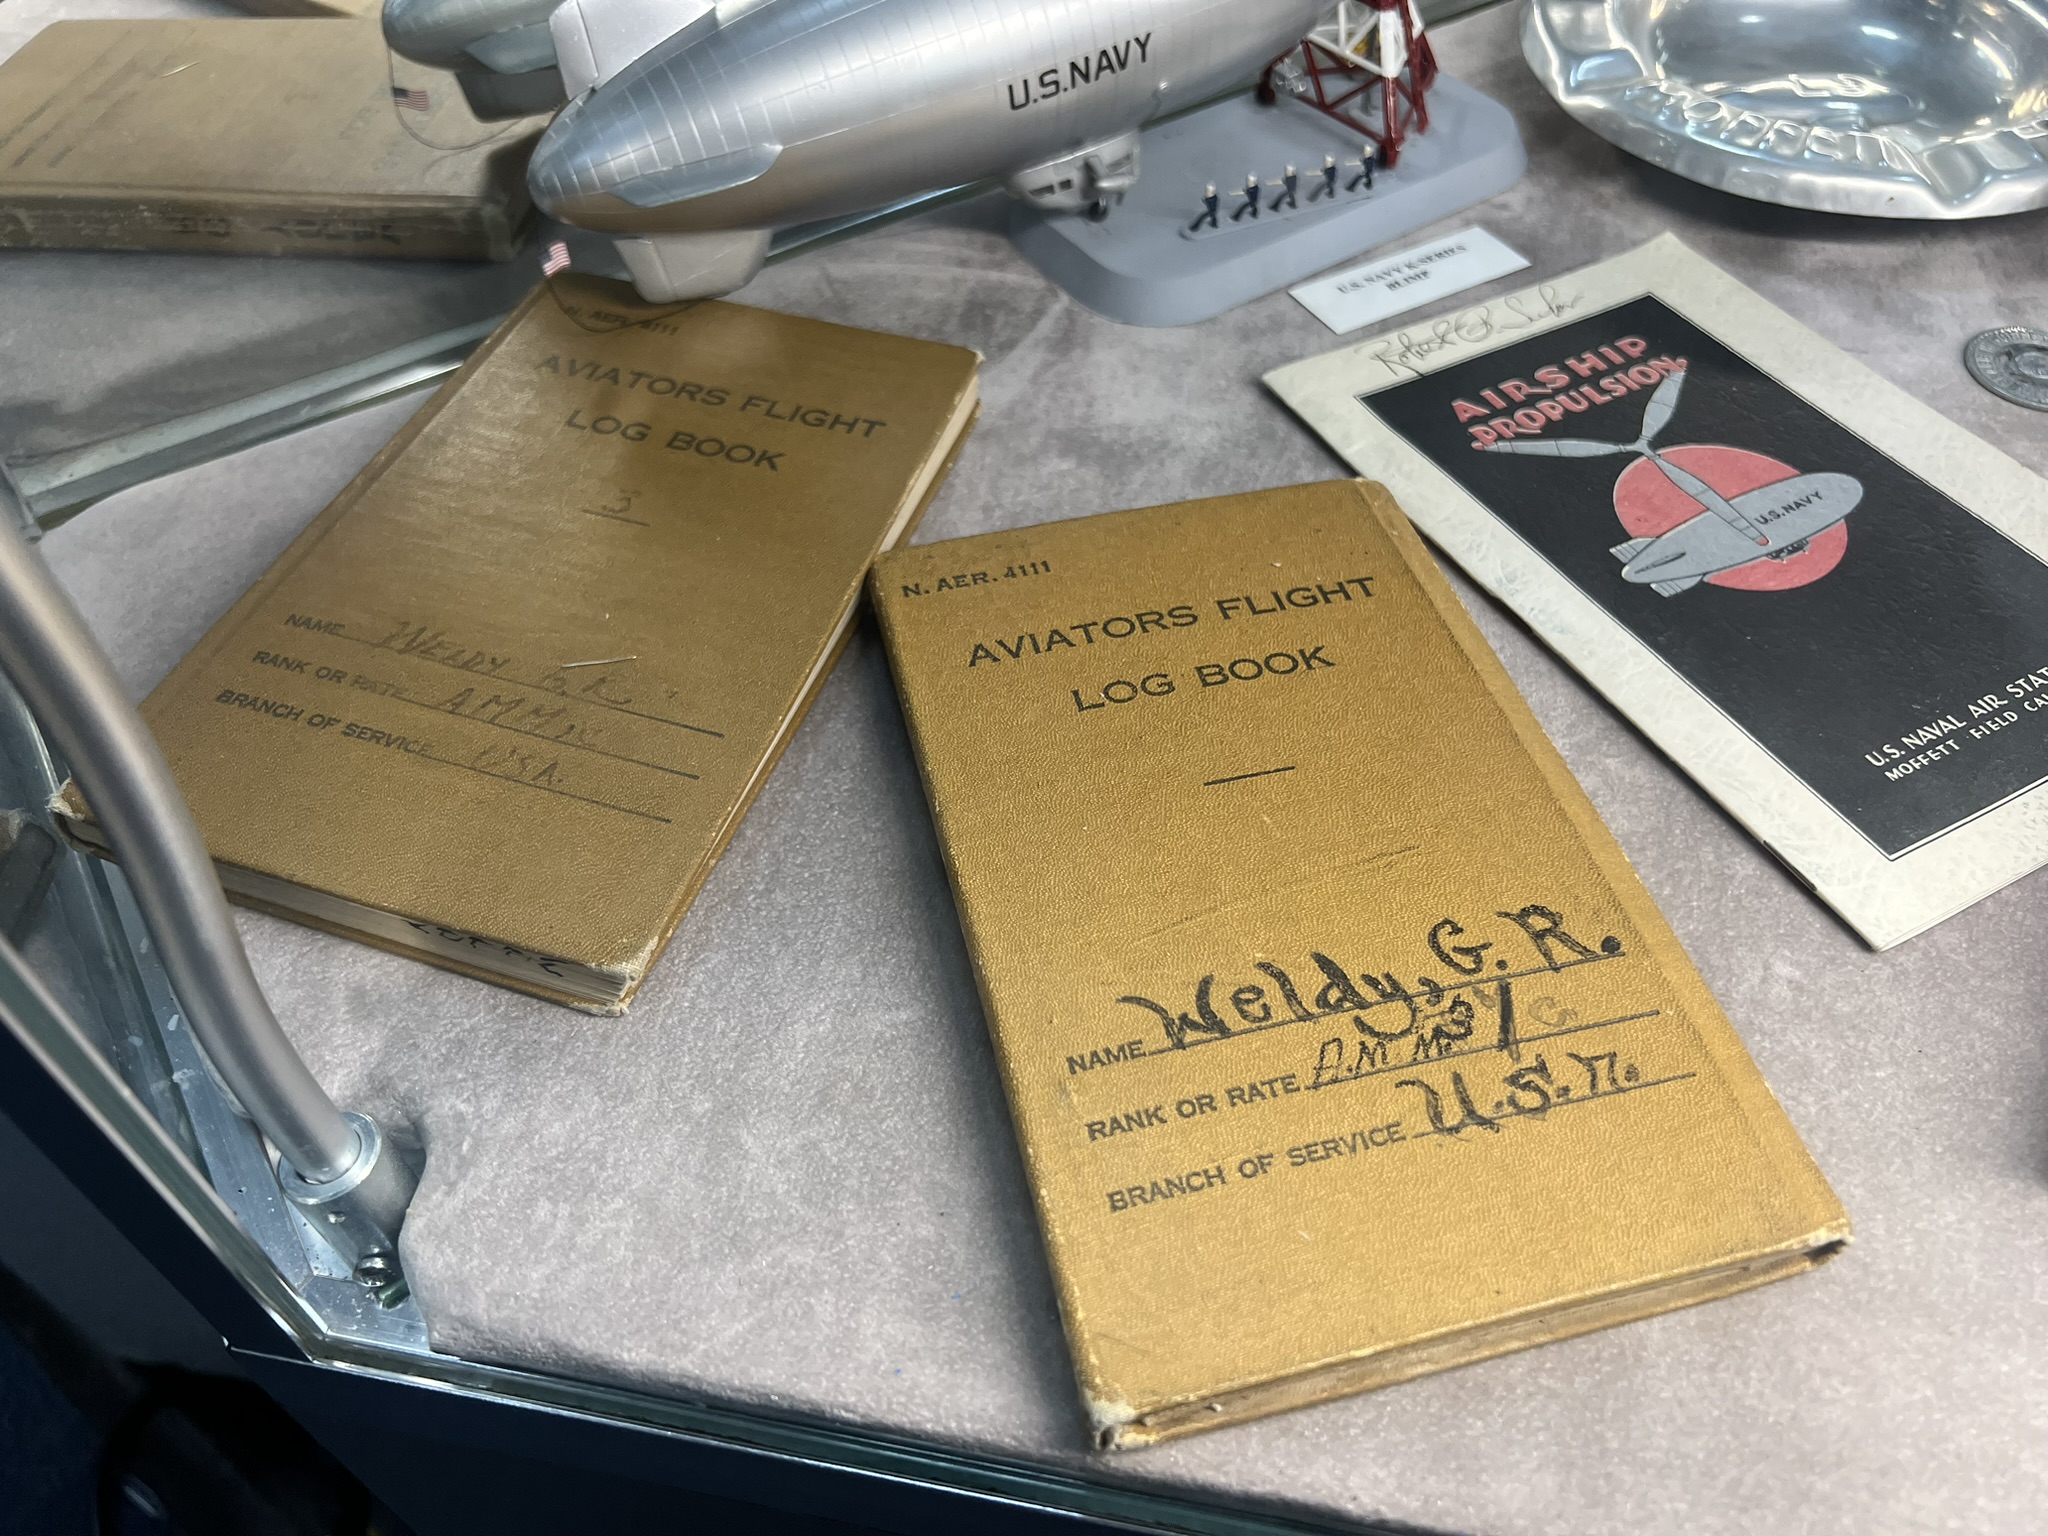 U.S.NAVY
U.S. NAVY K-SERIES
BLIMP
PROPERTY
N. AER. 4111
AVIATORS FLIGHT
LOG BOOK
3
NAME WELDY G.R.
RANK OR RATE AMM
BRANCH OF SERVICE
N. AER. 4111
AVIATORS FLIGHT
LOG BOOK
NAME Weldy, G. R.
RANK OR RATE A.M.M.
BRANCH OF SERVICE U.S.N.
Robert
AIRSHIP
PROPULSION
U.S. NAVY
U.S. NAVAL AIR STAT
MOFFETT FIELD CAL